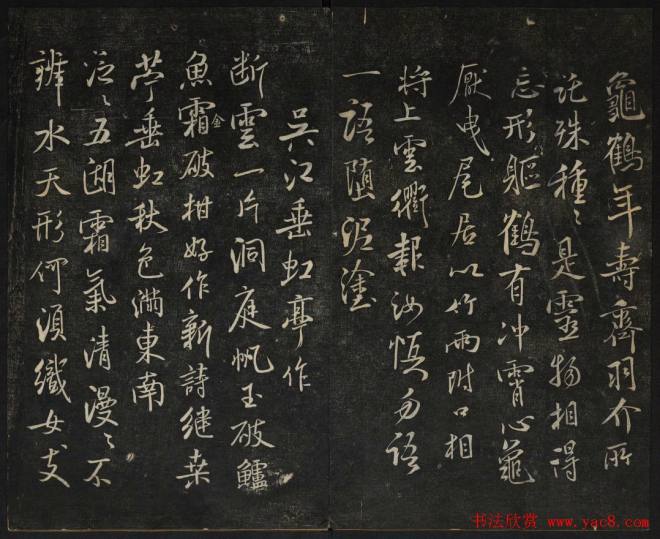 龜鶴年壽齊羽介所
託殊種種是靈物相得
忘形軀鶴有冲霄心龜
厭曳尾居以竹兩附口相
將上雲衢報汝慎勿語
一語墮泥塗
吳江垂虹亭作
断雲一片洞庭帆玉破鱸
魚霜金破柑好作新詩継桒
苧垂虹秋色滿東南
泛泛五湖霜氣清漫漫不
辨水天形何湏織女支
书法欣赏 www.yac8.com